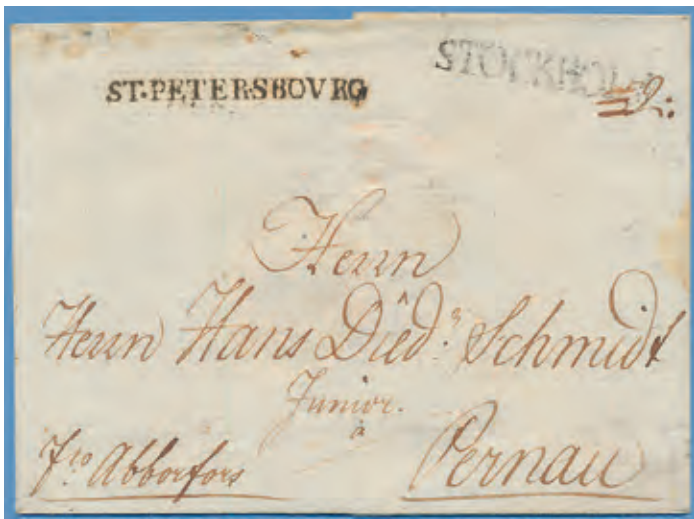 ST.PETERSBOVRG
STOCKHOLM
Herrn
Herrn Hans Died:n Schmidt
Junior.
à
Pernau
Fco Abborfors